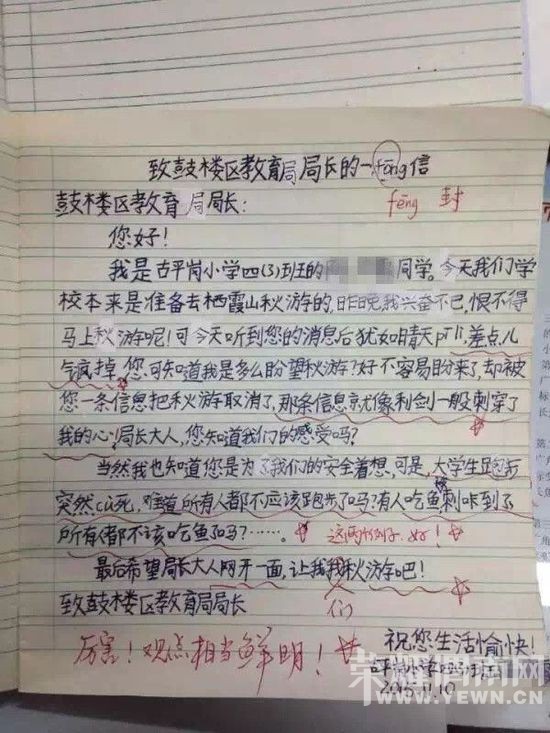 致鼓楼区教育局局长的一fōng信
fēng 封
鼓楼区教育局局长:
您好!
我是古平岗小学四(3)班的 同学。今天我们学
校本来是准备去栖霞山秋游的,昨晚我兴奋不已,恨不得
马上秋游呢!可今天听到您的消息后犹如晴天pī lì,差点儿
气疯掉。您可知道我是多么盼望秋游?好不容易盼来了却被
您一条信息把秋游取消了,那条信息就像利剑一般刺穿了
我的心!局长大人,您知道我们的感受吗?
当然我也知道您是为了我们的安全着想,可是,大学生跑步
突然cù死,难道所有人都不应该跑步了吗?有人吃鱼被刺咔到了
所有人都不该吃鱼了吗?……。 这两个例子好!
最后希望局长大人网开一面,让我我秋游吧!
们
致鼓楼区教育局局长
厉害!观点相当鲜明!
祝您生活愉快!
2015.11.10
荣耀渭南网
WWW.YEWN.CN